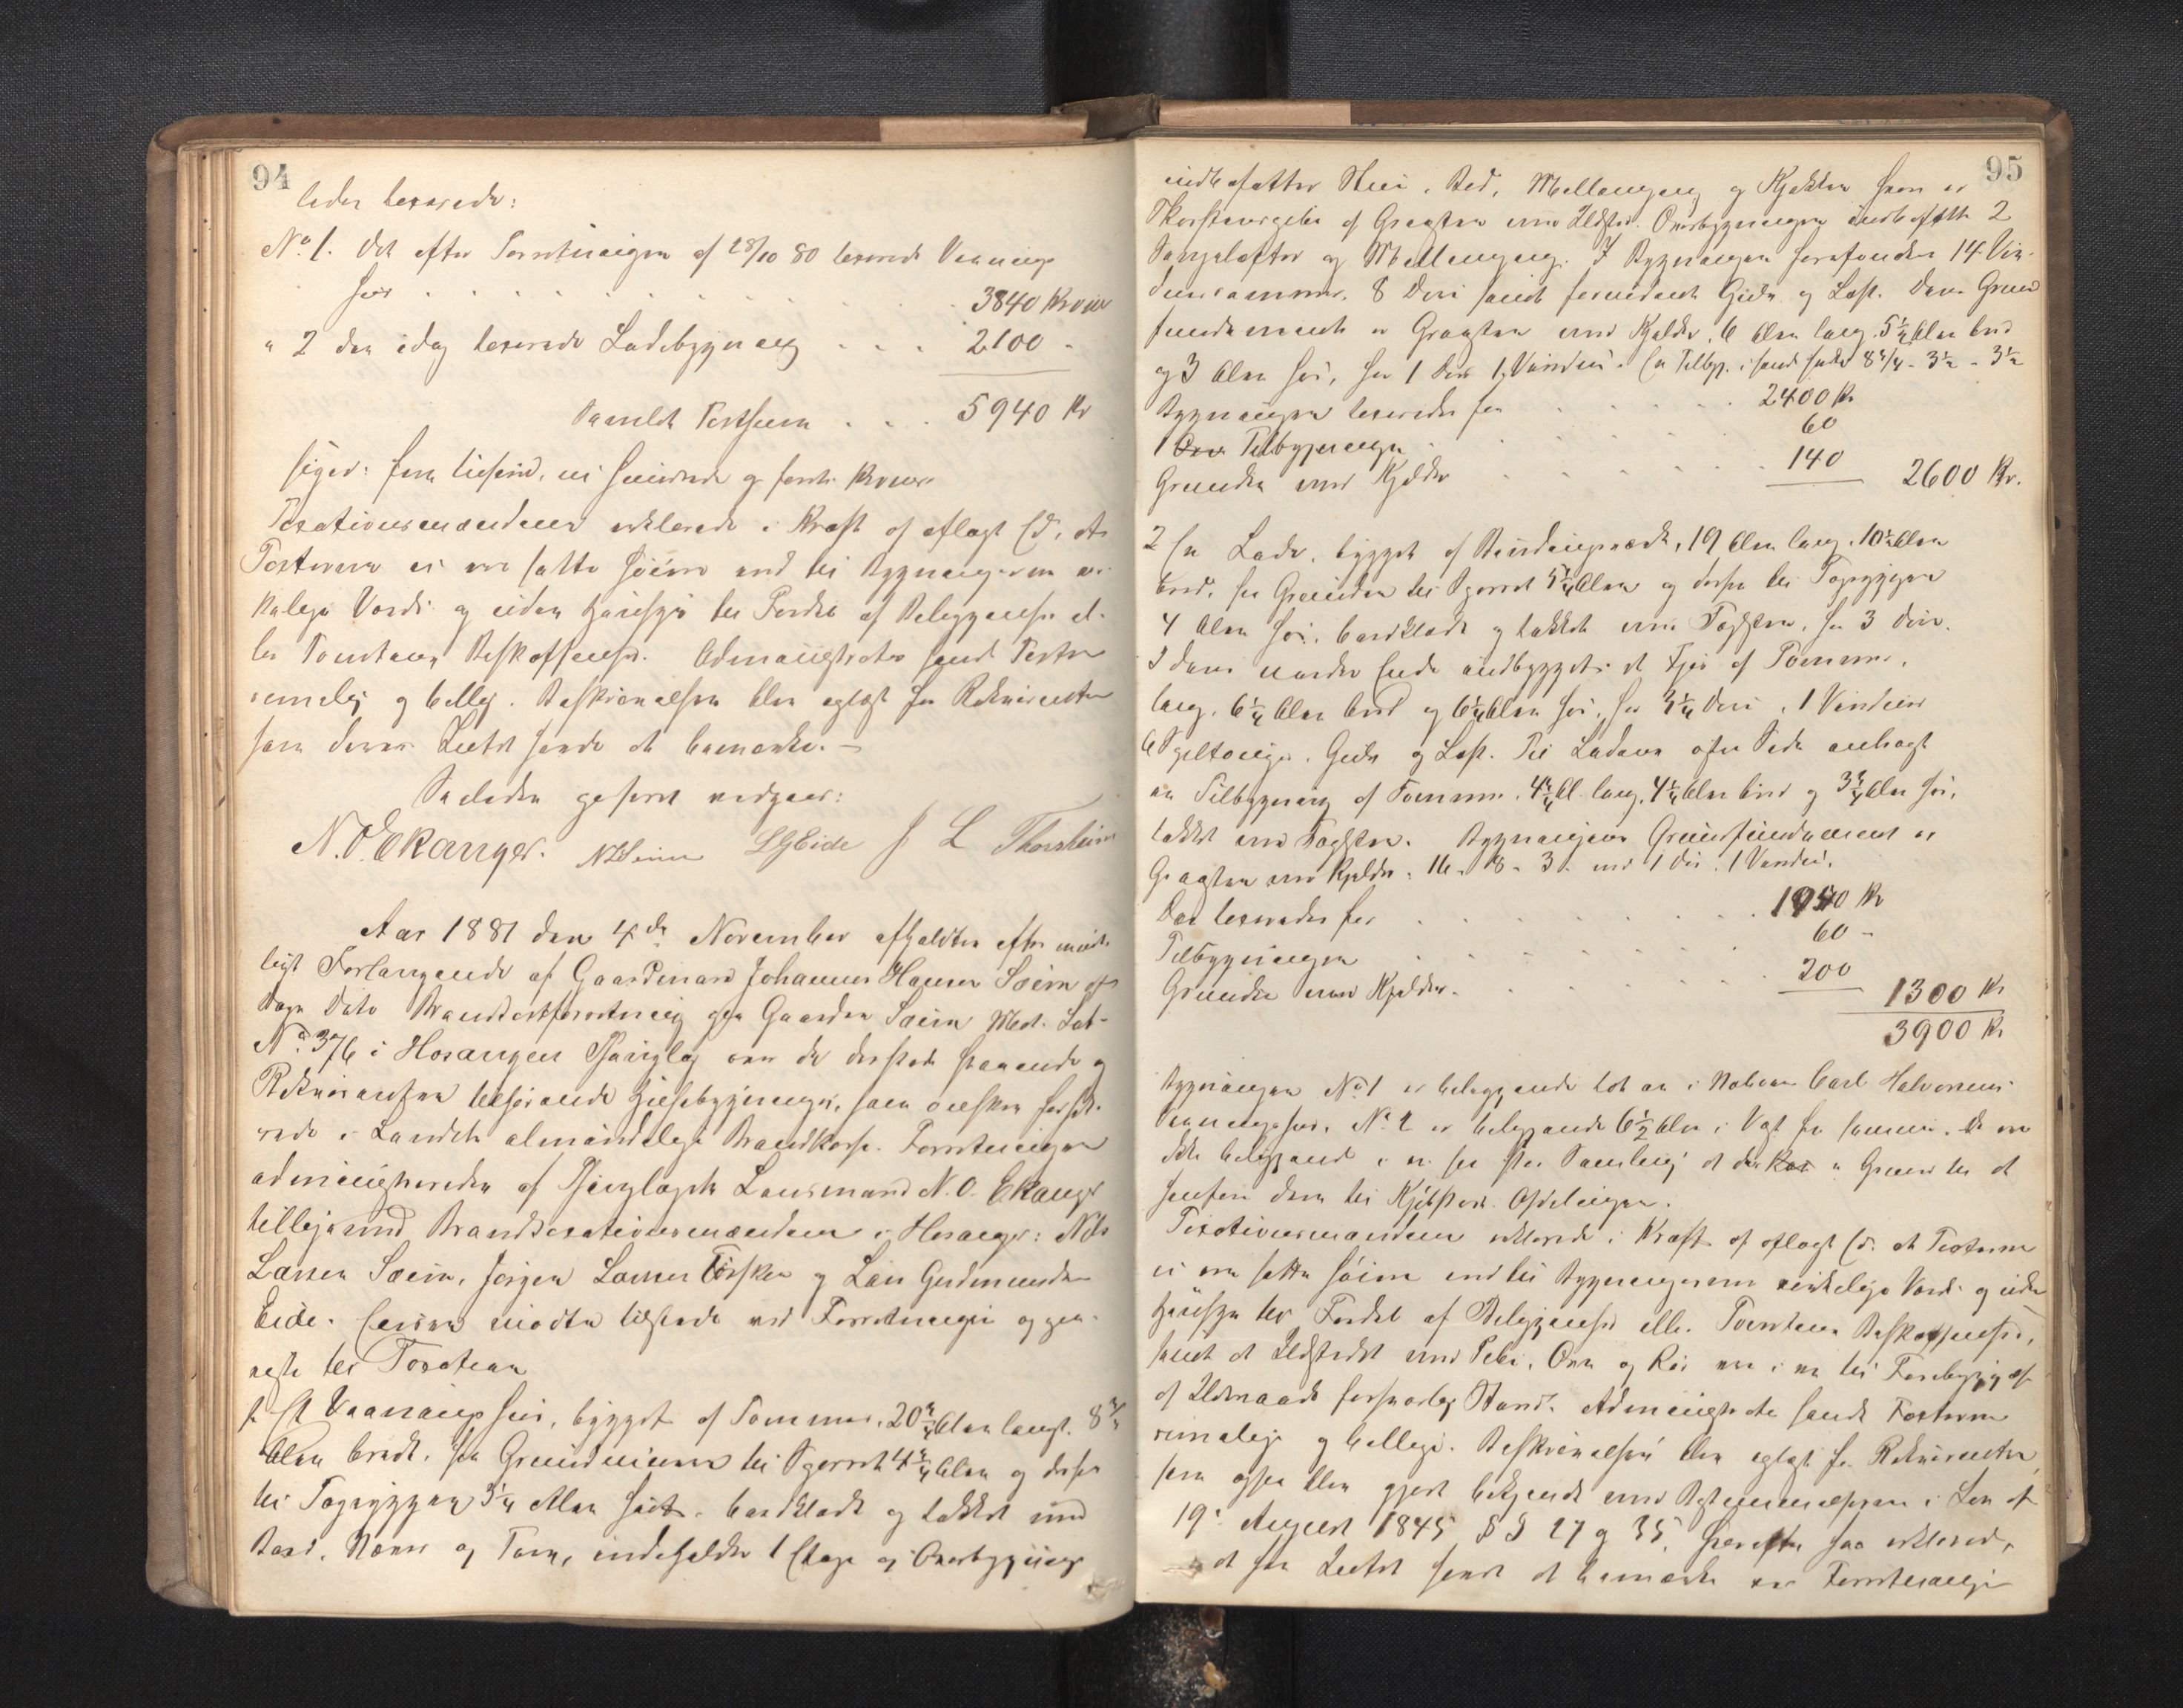 94
leder taxerede:
No. 1. Det efter Forretningen af 28/10 80 taxerede Vaanings
hus . . . 3840 Kroner
" 2 den idag taxerede Ladebygning . . . 2100 "
Samlet Taxtsum . . . 5940 Kr
siger: fem tusind, ni hundrede og forti Kroner
Taxationsmændene erklærede i Kraft af aflagt Ed, at
Taxterne ei ere satte høiere end til Bygningernes vir-
kelige Værdi og uden Hensyn til Fordel af Beliggenhed el-
ler Tomtens Beskaffenhed. Administrator fandt Taxten
rimelig og billig. Beskrivelsen blev oplæst for Rekvirenten
som derved Intet havde at bemærke. —
Saaledes passeret vedgaaes:
N. O. Ekanger. NLSeim LGEide J L Thorsheim
Aar 1881 den 4de November afholdtes efter mundt-
ligt Forlangende af Gaardmand Johannes Hansen Sæim af
Dags Dato Brandtaxtforretning paa Gaarden Sæim Mat. Løb-
No. 376 i Hosangers Thinglag over de dersteds staaende og
Rekvirenten tilhørende Husebygninger, som ønskes forsik-
rede i Landets almindelige Brandkasse. Forretningen
administreredes af Thinglagets Lensmand N. O. Ekanger
tilligemed Brandtaxationsmændene i Hosanger: Nils
Larsen Sæim, Jørgen Larsen Torsken og Lars Gudmundsen
Eide. Eieren mødte tilstede ved Forretningen og gen-
negik til Taxation
1. Et Vaaningshus, bygget af Tømmer, 20 2/4 Alen langt, 8 3/4
Alen bredt, fra Grundmuren til Sperret 4 3/4 Alen og derfra
til Tagryggen 3 1/4 Alen høit, bordklædt og tækket med
Bord, Næver og Torv, indeholder 1 Etage og Overbygning
95
indbefatter Stue, Bod, Mellemgang og Kjøkken hvori er
Skorstenspibe af Graasten med Ildsted. Overbygningen indbefatter 2
Sængelofter og Mellemgang. I Bygningen forefindes 14 Vin-
duesrammer, 8 Døre samt fornødent Gulv og Loft. Dens Grund
fundament er Graasten med Kjelder, 6 Alen lang, 5 1/4 Alen bred
og 3 Alen høi, har 1 Dør 1 Vindue. En Tilbyg. 8 3/4 - 3 1/2 - 3 1/2
Bygningen taxeredes for . . . 2400 Kr
1 Tilbygningen . . . 60
Grunden med Kjelder . . . 140 2600 Kr.
2 En Lade, bygget af Bindingsværk, 19 Alen lang, 10 1/2 Alen
bred, fra Grunden til Sperret 5 1/4 Alen og derfra til Tagryggen
4 Alen høi, bordklædt og tækket med Tagsten, har 3 Døre.
I dens nordre Ende indbygget et Fjøs af Tømmer,
lang, 6 1/4 Alen bred og 6 1/4 Alen høi, har Døre, 1 Vindue
6 Gulv og Loft. Til Ladens Side anbragt
en Tilbygning af Tømmer, 4 3/4 Al. lang, 4 1/4 Alen bred og 3 3/4 Alen høi,
tækket med Tagsten. Bygningens Grundfundament er
Graasten med Kjelder: 16 - 8 - 3. med 1 Dør 1 Vindue.
Den taxeredes for . . . 1040 Kr
Tilbygningen . . . 60 -
Grunden med Kjelder . . . 200 1300 Kr
3900 Kr
Bygningen No. 1 er beliggende tæt an i Nabo Carl Halvorsens
Vaaningshus. No. 2 er beliggende 6 1/2 Alen i Vest fra samme. De ere
ikke beliggende i en saa stor Samling at der er Grund til at
henføre dem til Kjøbstad Afdelingen.
Taxationsmændene erklærede i Kraft af aflagt Ed, at Taxterne
ei ere satte høiere end til Bygningernes virkelige Værdi og uden
Hensyn til Fordel af Beliggenhed eller Tomtens Beskaffenhed,
samt at Ildstedet med Pibe, Ovn og Rør ere i en til Forebyggelse
af Ildsvaade forsvarlig Stand. Administrator fandt Taxterne
rimelige og billige. Beskrivelsen blev oplæst for Rekvirenten,
som ogsaa blev gjort bekjendt med Bestemmelserne i Lov af
19. August 1845 §§ 27 og 35, hvorefter han erklærede,
at han Intet havde at bemærke ved Forretningen